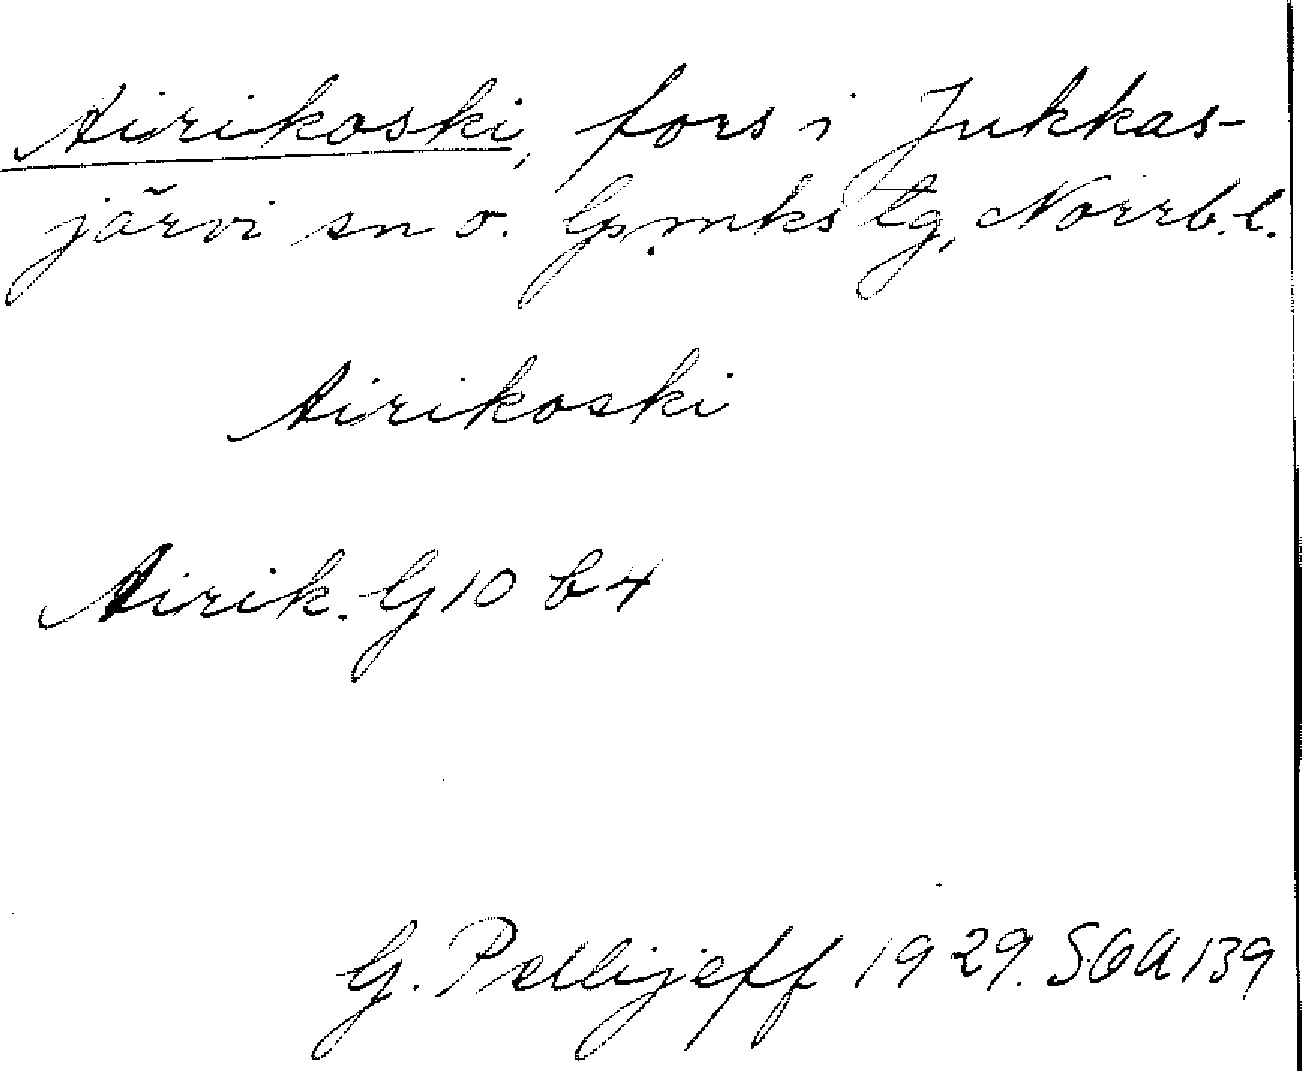 Airikoski, fors i Jukkas-
järvi sn o. G.mks tg, Norrb.l.
Airikoski
Airik. G 10 b 4
G. Pellijeff 1929. SOA 139